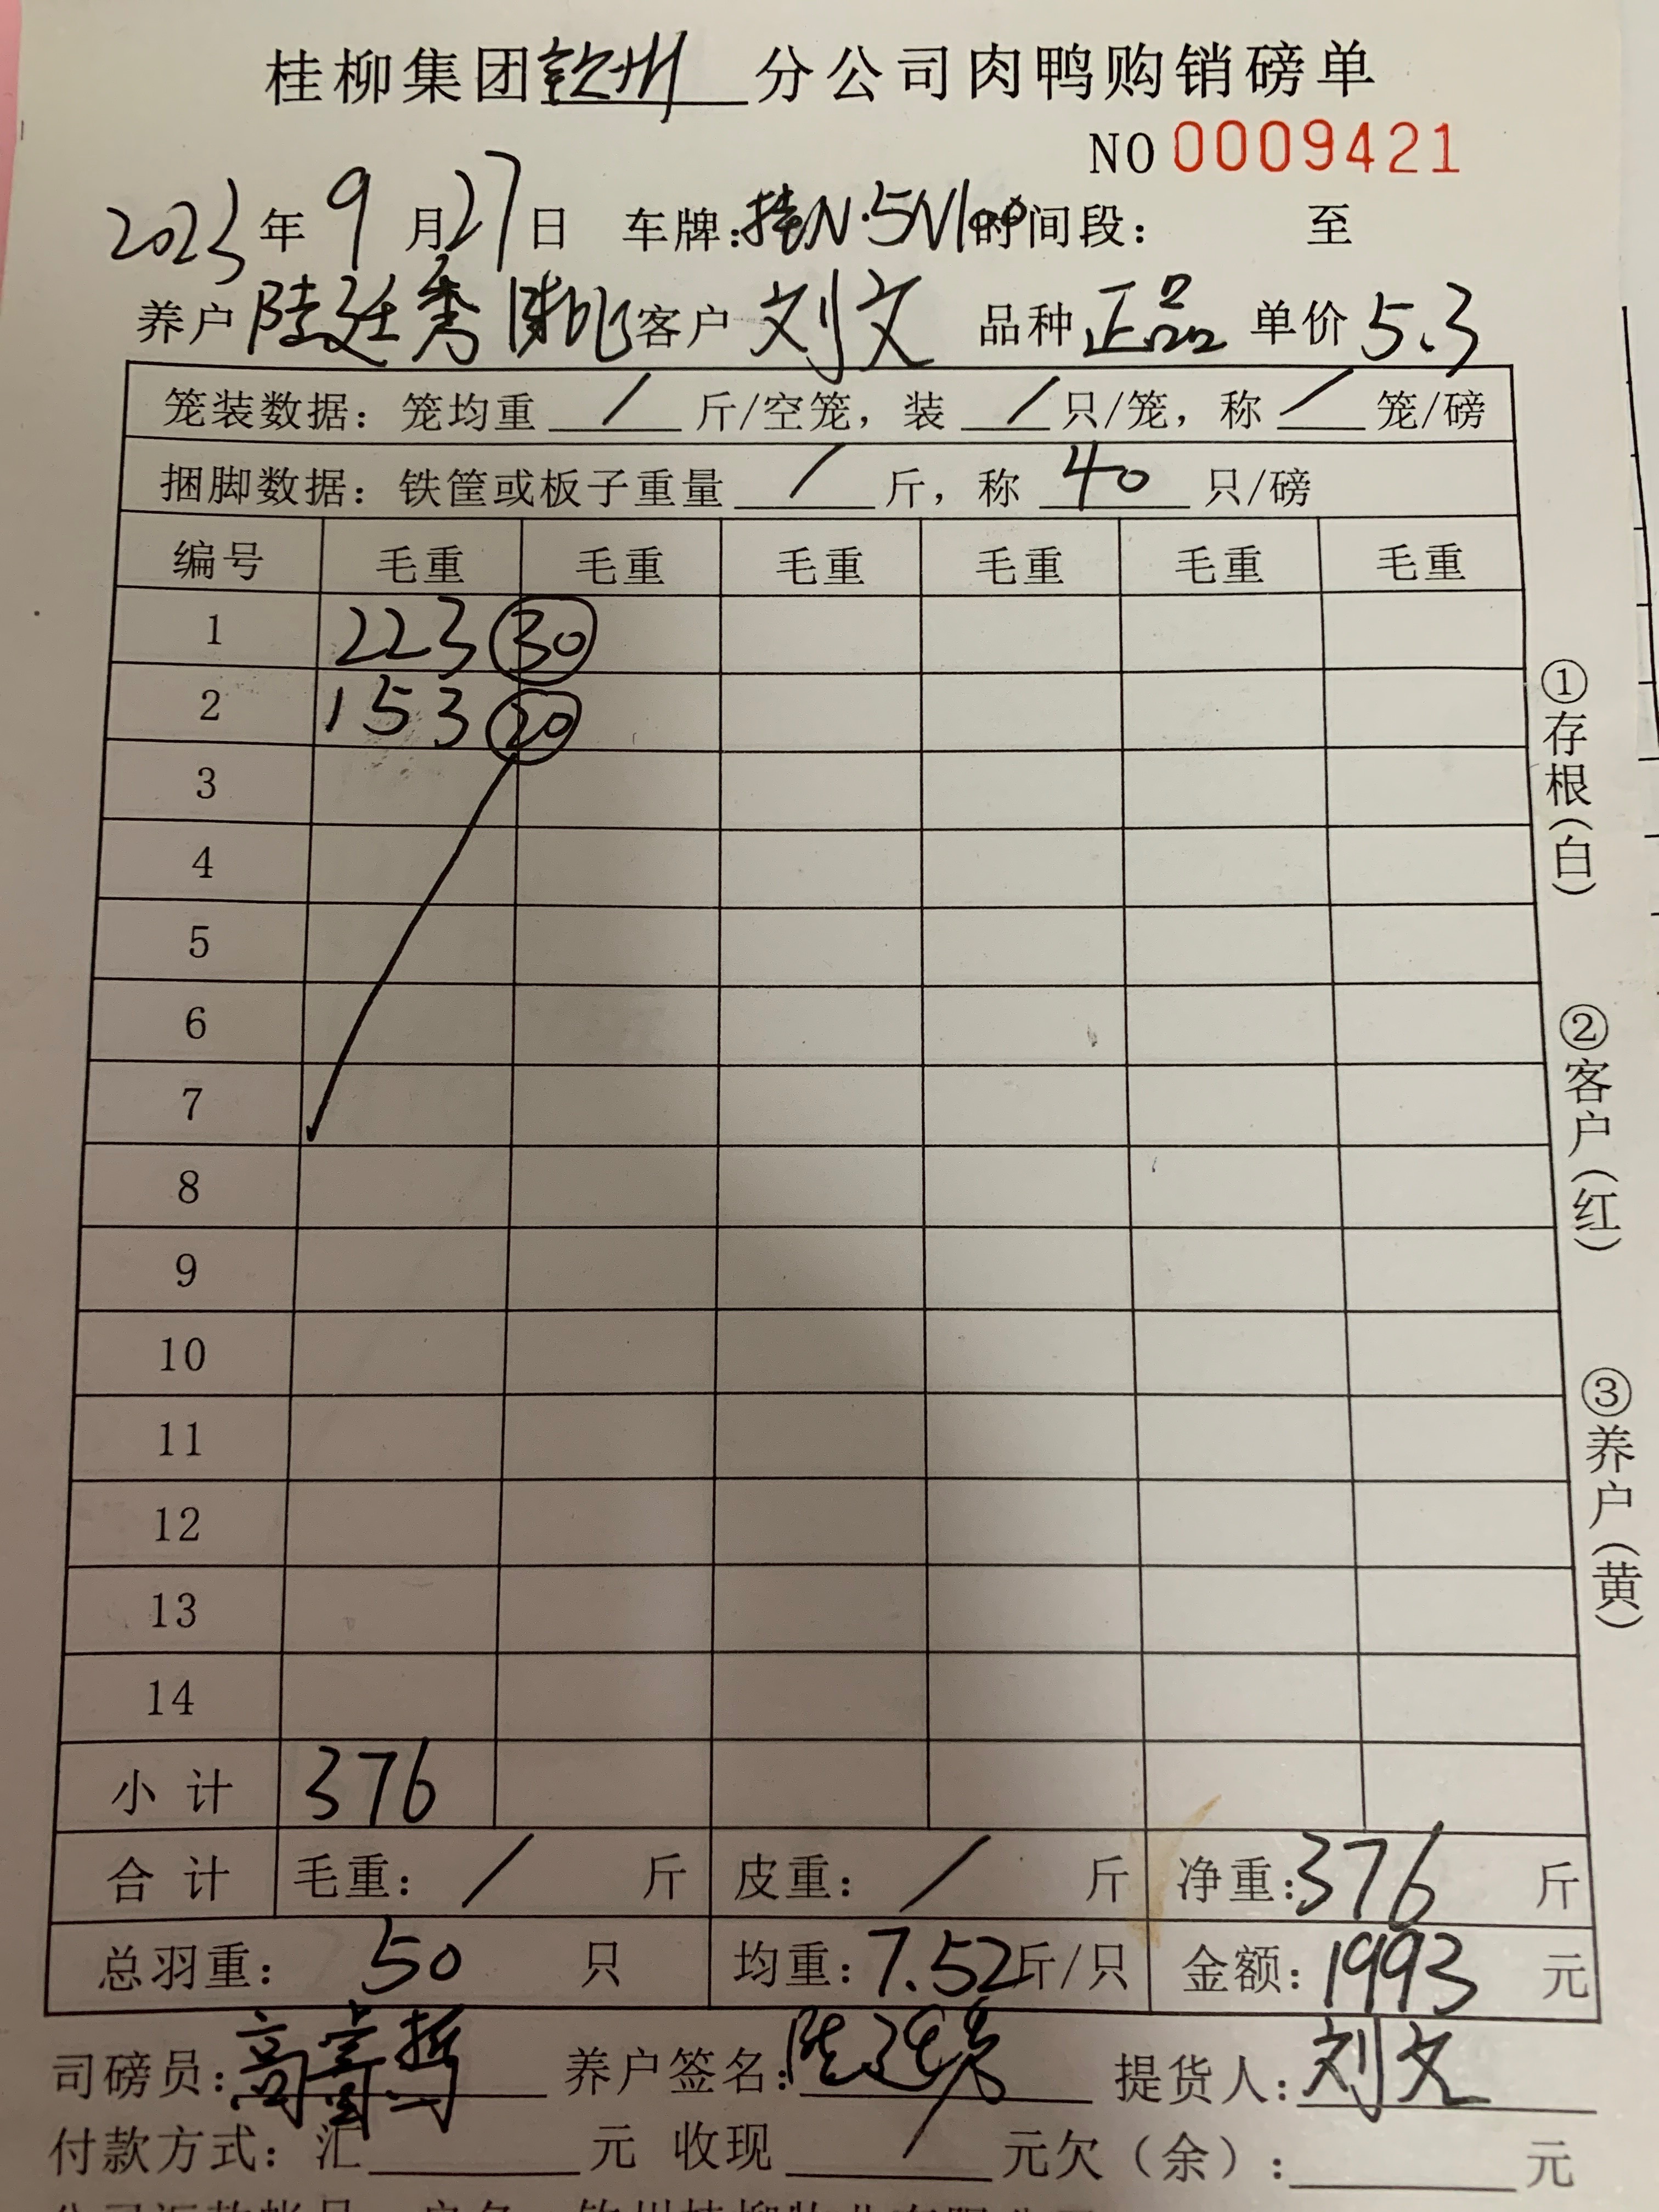 桂柳集团钦州分公司肉鸭购销磅单
NO 0009421
2023年9月27日 车牌:桂N·5N100时间段: 至
养户陆廷秀 客户刘文 品种正品 单价5.3
笼装数据:笼均重/斤/空笼,装/只/笼,称/笼/磅
捆脚数据:铁筐或板子重量/斤,称40只/磅
编号 毛重 毛重 毛重 毛重 毛重 毛重
1 223 30
2 153 20
3
4
5
6
7
8
9
10
11
12
13
14
小计 376
合计 毛重:/斤 皮重:/斤 净重:376斤
总羽重:50只 均重:7.52斤/只 金额:1993元
司磅员: 养户签名:陆廷秀 提货人:刘文
付款方式:汇 元 收现/元欠(余): 元
①存根(白)
②客户(红)
③养户(黄)